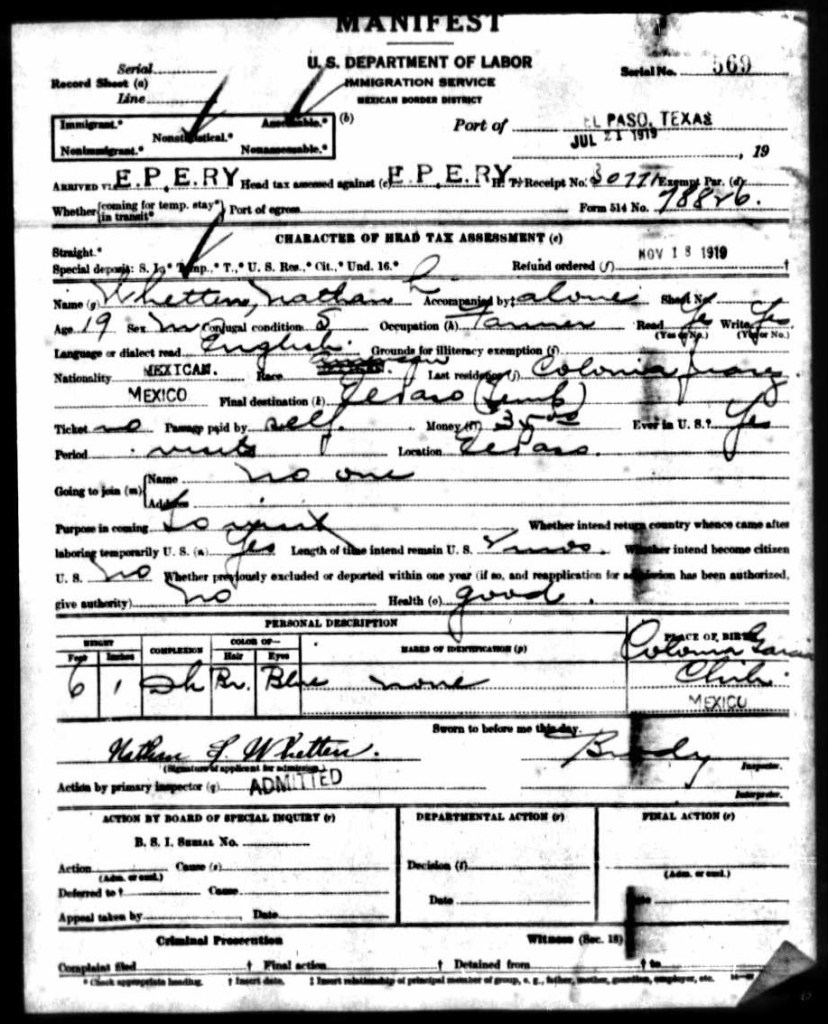 MANIFEST
U. S. DEPARTMENT OF LABOR
IMMIGRATION SERVICE
MEXICAN BORDER DISTRICT
Serial
Record Sheet (a)
Line
Serial No. 569
Immigrant.* Assessable.* (b)
Nonstatistical.*
Nonimmigrant.* Nonassessable.*
Port of EL PASO, TEXAS
JUL 21 1919, 19
ARRIVED VIA E.P.E.RY Head tax assessed against (c) E.P.E.RY. H. T. Receipt No. 30771 Exempt Par. (d)
Whether {coming for temp. stay* in transit*} Port of egress Form 514 No. 78826.
CHARACTER OF HEAD TAX ASSESSMENT (e)
Straight.*
Special deposit: S. I.,* Temp.,* T.,* U. S. Res.,* Cit.,* Und. 16.* Refund ordered (f) NOV 18 1919 †
Name (g) Whetten, Nathan L. Accompanied by‡ alone Sheet No.
Age 19 Sex m Conjugal condition S Occupation (h) Farmer Read Yes Write Yes
(Yes or No.) (Yes or No.)
Language or dialect read English. Grounds for illiteracy exemption (i)
Nationality MEXICAN. Race Last residence (j) Colonia Juarez.
MEXICO Final destination (k) El Paso (Temp)
Ticket no Passage paid by self. Money (l) 35.00 Ever in U. S.? Yes
Period visits Location El Paso.
Going to join (m) {Name no one
Address
Purpose in coming to visit Whether intend return country whence came after
laboring temporarily U. S. (n) Yes Length of time intend remain U. S. mos. Whether intend become citizen
U. S. No Whether previously excluded or deported within one year (if so, and reapplication for admission has been authorized,
give authority) No Health (o) good.
PERSONAL DESCRIPTION
HEIGHT COMPLEXION COLOR OF— MARKS OF IDENTIFICATION (p) PLACE OF BIRTH
Feet Inches Hair Eyes
6 1 Dk Br. Blue none Colonia Garcia
Chih.
MEXICO
Sworn to before me this day.
Nathan L. Whetten. Brady
(Signature of applicant for admission.) Inspector.
Action by primary inspector (q) ADMITTED
Interpreter.
ACTION BY BOARD OF SPECIAL INQUIRY (r) DEPARTMENTAL ACTION (r) FINAL ACTION (r)
B. S. I. SERIAL NO.
Action Cause (s) Decision (t)
(Adm. or excl.) (Adm. or excl.)
Deferred to † Cause Date Date
Appeal taken by , Date
Criminal Prosecution Witness (Sec. 18)
Complaint filed † Final action † Detained from † to †
* Check appropriate heading. † Insert date. ‡ Insert relationship of principal member of group, e. g., father, mother, guardian, employer, etc.